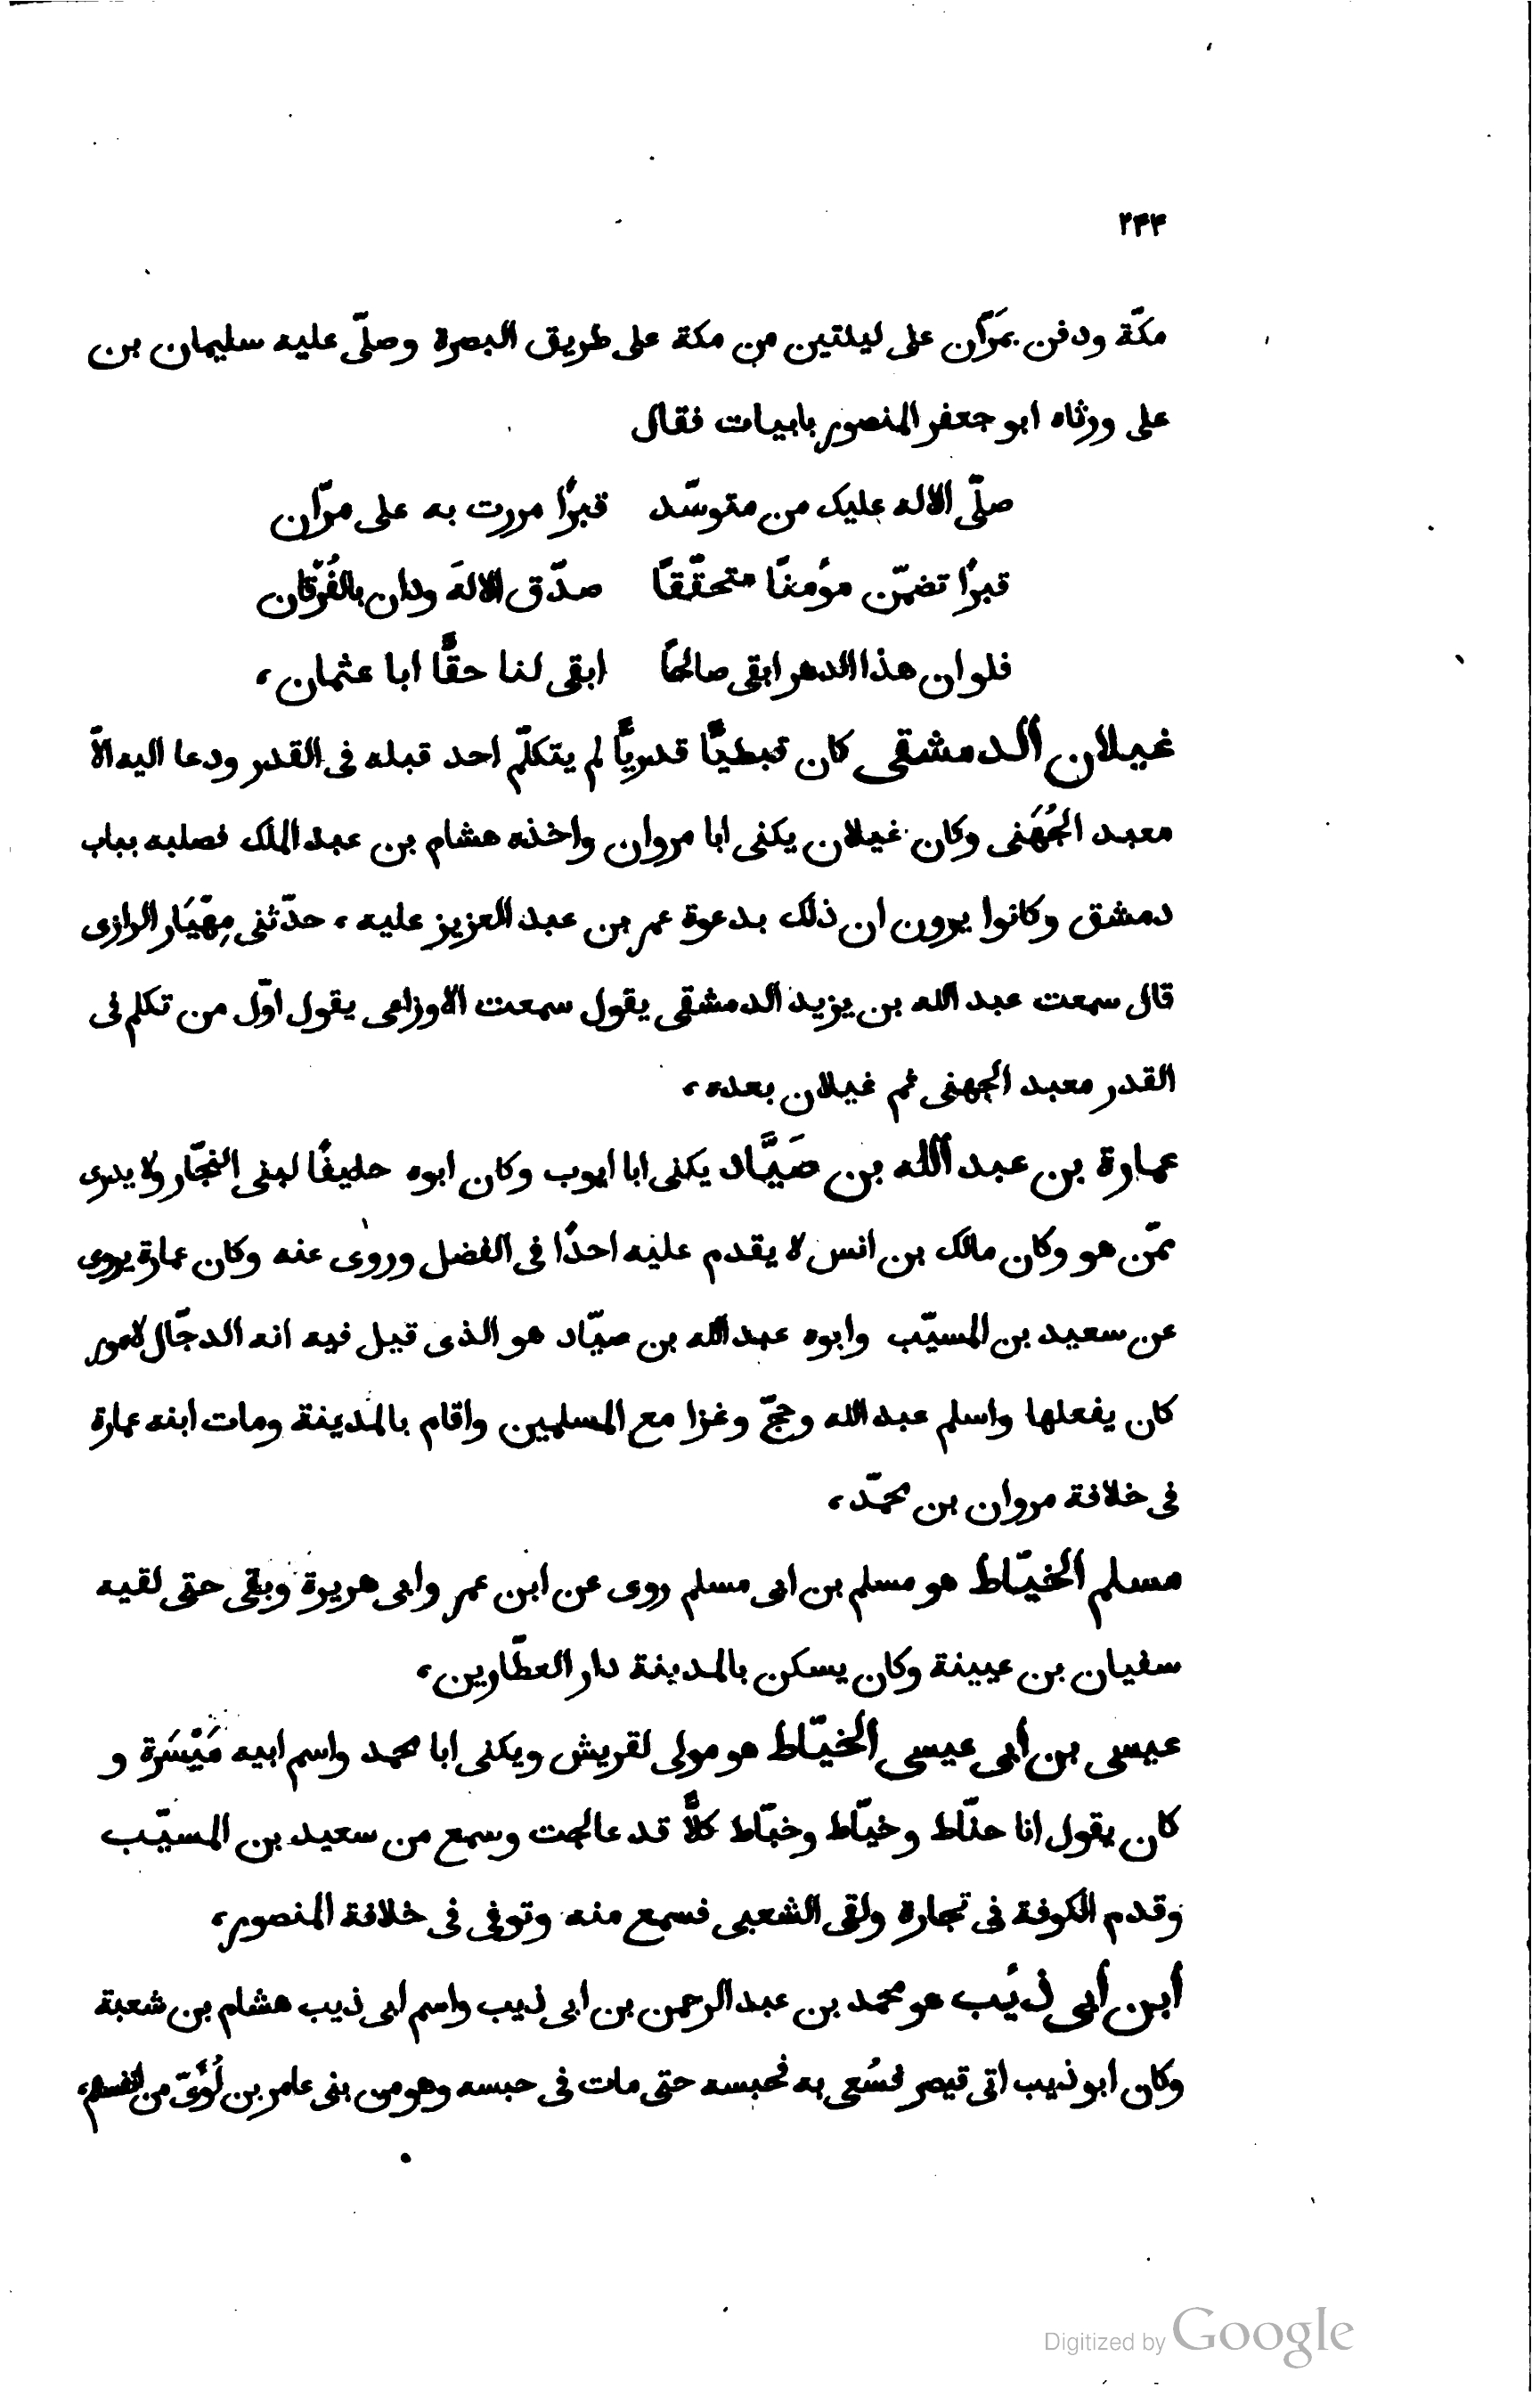 ٢٤٤
مكّة ودفن بمَرّان على ليلتين من مكة على طريق البصرة وصلّى عليه سليمان بن
على ورثاه ابو جعفر المنصور بابيات فقال
صلّى الاله عليك من متوسّد قبرًا مررت به على مرّان
قبرًا تضمّن مؤمنًا متحقّقًا صدّق الالهَ ودان بالفُرْقان
فلو ان هذا الدهر ابقى صالحًا ابقى لنا حقًّا ابا عثمان،
غيلان الدمشقى كان قبطيًّا قدريًّا لم يتكلّم احد قبله فى القدر ودعا اليه الاّ
معبد الجُهَنى وكان غيلان يكنى ابا مروان واخذه هشام بن عبد الملك فصلبه بباب
دمشق وكانوا يرون ان ذلك بدعوة عمر بن عبد العزيز عليه، حدّثنى مِهْيَار الرازى
قال سمعت عبد الله بن يزيد الدمشقى يقول سمعت الاوزاعى يقول اوّل من تكلم فى
القدر معبد الجهنى ثم غيلان بعده،
عمارة بن عبد الله بن صَيَّاد يكنى ابا ايوب وكان ابوه حليفًا لبنى النجّار ولا يدرى
ممّن هو وكان مالك بن انس لا يقدم عليه احدًا فى الفضل وروى عنه وكان عمارة يروى
عن سعيد بن المسيّب وابوه عبد الله بن صيّاد هو الذى قيل فيه انه الدجّال لامور
كان يفعلها واسلم عبد الله وحجّ وغزا مع المسلمين واقام بالمدينة ومات ابنه عمارة
فى خلافة مروان بن محمّد،
مسلم الخيّاط هو مسلم بن ابى مسلم روى عن ابن عمر وابى هريرة وبقى حتى لقيه
سفيان بن عيينة وكان يسكن بالمدينة دار العطّارين،
عيسى بن ابى عيسى الخيّاط هو مولى لقريش ويكنى ابا محمد واسم ابيه مَيْسَرة و
كان يقول انا حنّاط وخيّاط وخبّاط كلاًّ قد عالجت وسمع من سعيد بن المسيّب
وقدم الكوفة فى تجارة ولقى الشعبى فسمع منه وتوفى فى خلافة المنصور،
ابن ابى ذئب هو محمد بن عبد الرحمن بن ابى ذيب واسم ابى ذيب هشام بن شعبة
وكان ابو ذيب اتى قيصر فسُعى به فحبسه حتى مات فى حبسه وهو من بنى عامر بن لُؤَىّ من انفسهم،
Digitized by Google